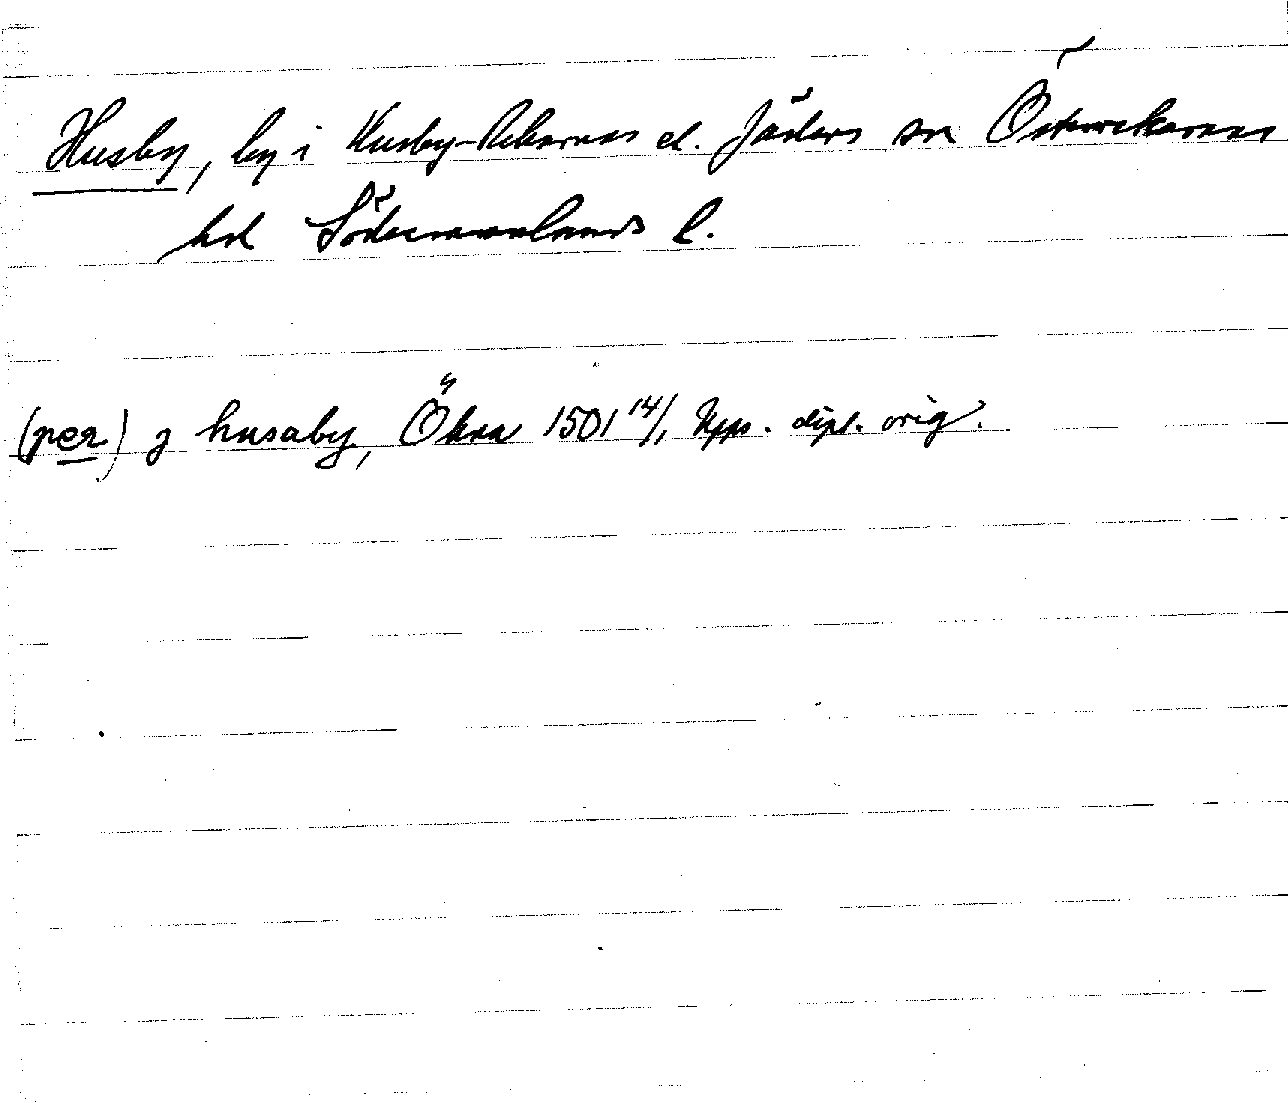 Husby, by i Husby-Rekarnes el. Jäders sn Österrekarnes
hd Södermanlands l.
(per) j husaby, Ökna 1501 14/1 Upps. dipl. orig.